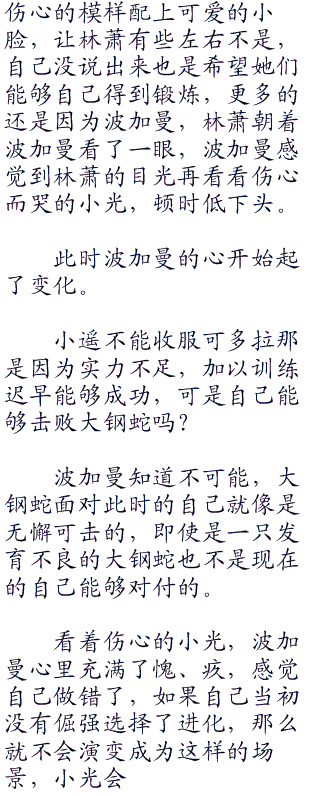 伤心的模样配上可爱的小
脸，让林萧有些左右不是，
自己没说出来也是希望她们
能够自己得到锻炼，更多的
还是因为波加曼，林萧朝着
波加曼看了一眼，波加曼感
觉到林萧的目光再看看伤心
而哭的小光，顿时低下头。
此时波加曼的心开始起
了变化。
小遥不能收服可多拉那
是因为实力不足，加以训练
迟早能够成功，可是自己能
够击败大钢蛇吗？
波加曼知道不可能，大
钢蛇面对此时的自己就像是
无懈可击的，即使是一只发
育不良的大钢蛇也不是现在
的自己能够对付的。
看着伤心的小光，波加
曼心里充满了愧、疚，感觉
自己做错了，如果自己当初
没有倔强选择了进化，那么
就不会演变成为这样的场
景，小光会